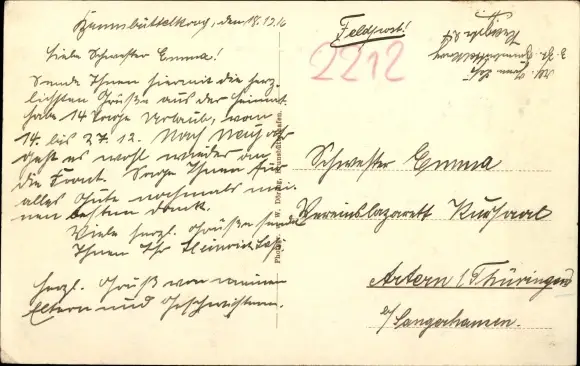 Hemmbüttelkoog, den 18.12.16
Liebe Schwester Emma!
Sende Ihnen hiermit die herz-
lichsten Grüße aus der Heimat
habe 14 Tage Urlaub, vom
14. bis 27. 12. Nach Neujahr
geht es wohl wieder an
die Front. Sage Ihnen für
alles Gute nochmals mei-
nen besten Dank.
Viele herzl. Grüße sendet
Ihnen Ihr Heinrich
Herzl. Gruß von meinen
Eltern und Geschwistern.
Feldpost!
2212
Schwester Emma
Vereinslazarett Kursaal
Artern (Thüringen)
b/ Sangerhausen.